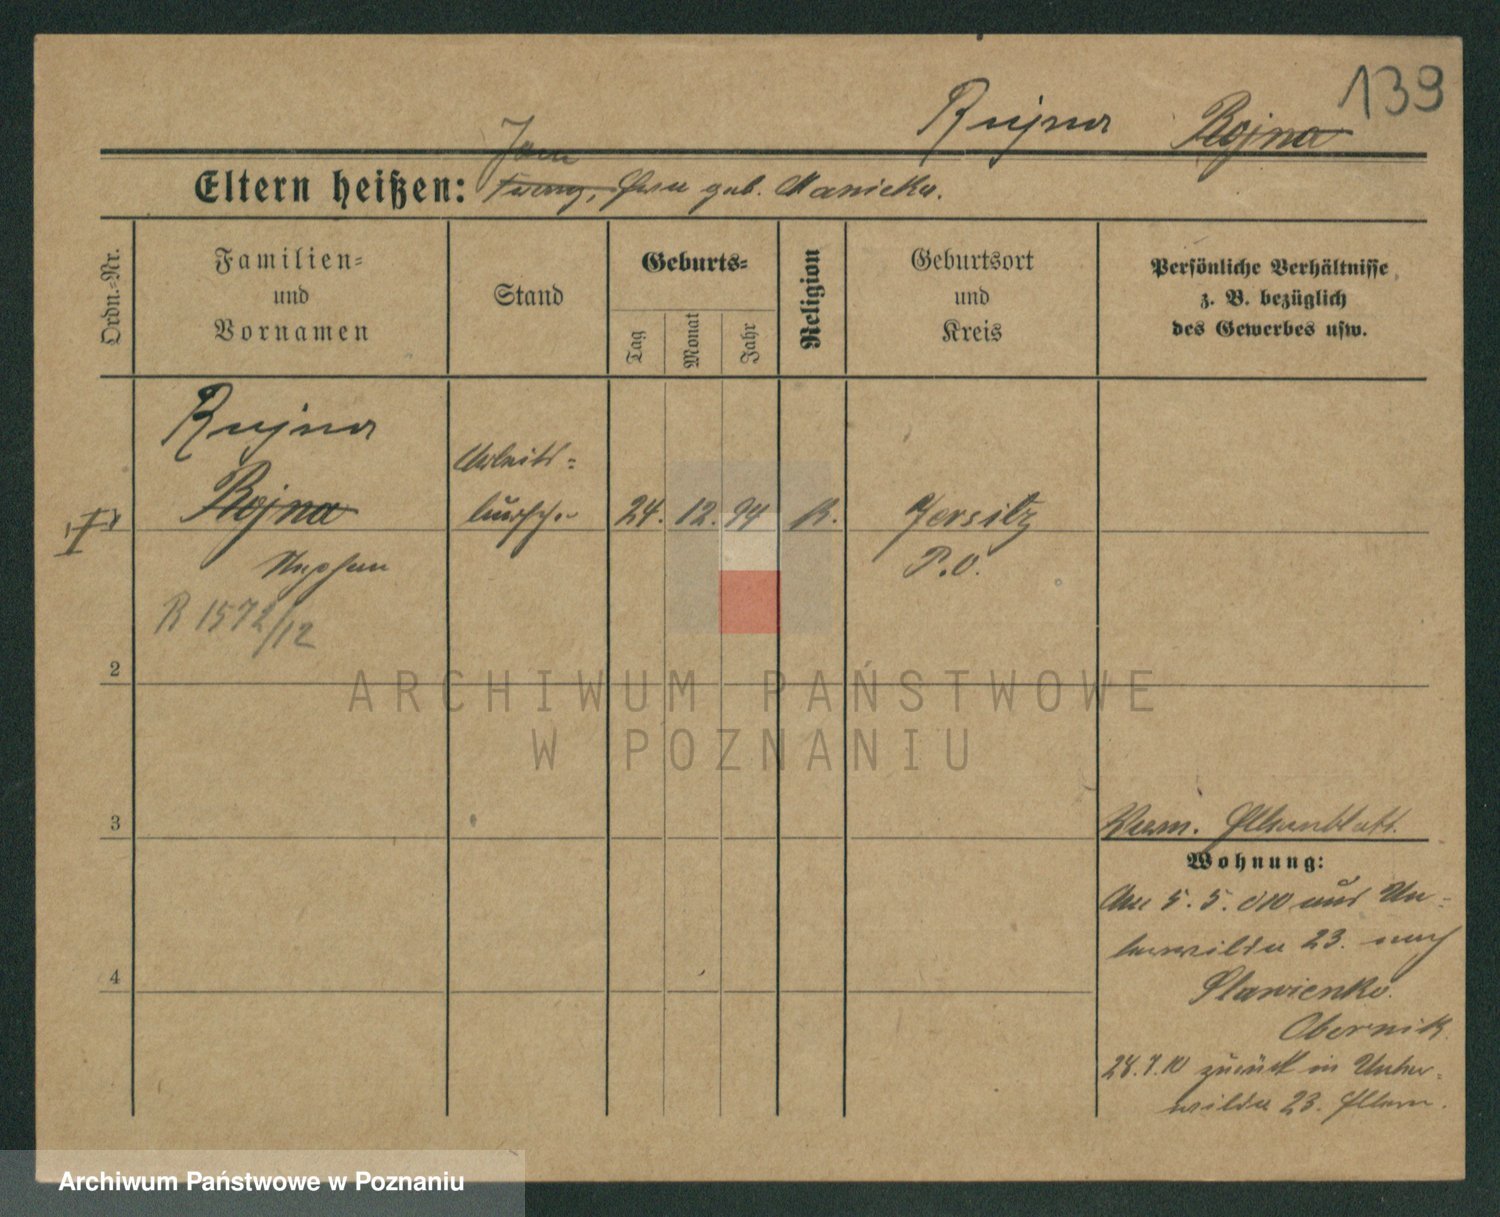 139
Rujna Rojna
Jan
Eltern heißen: Franz, Eva geb. Maniecka.
Ordn.-Nr.
Familien-
und
Vornamen
Stand
Geburts-
Tag
Monat
Jahr
Religion
Geburtsort
und
Kreis
Persönliche Verhältnisse
z. B. bezüglich
des Gewerbes usw.
Rujna
Rojna
Stephan
R 1572/12
Arbeits-
bursche
24. 12. 94 K.
Jersitz
P. O.
2
3
4
Verm. Elternblatt.
Wohnung:
Am 5. 5. 010 aus Un-
terwilda 23. nach
Slawienko.
Obornik
28.7.10 zurück in Unter-
wilda 23. Eltern.
ARCHIWUM PAŃSTWOWE
W POZNANIU
Archiwum Państwowe w Poznaniu